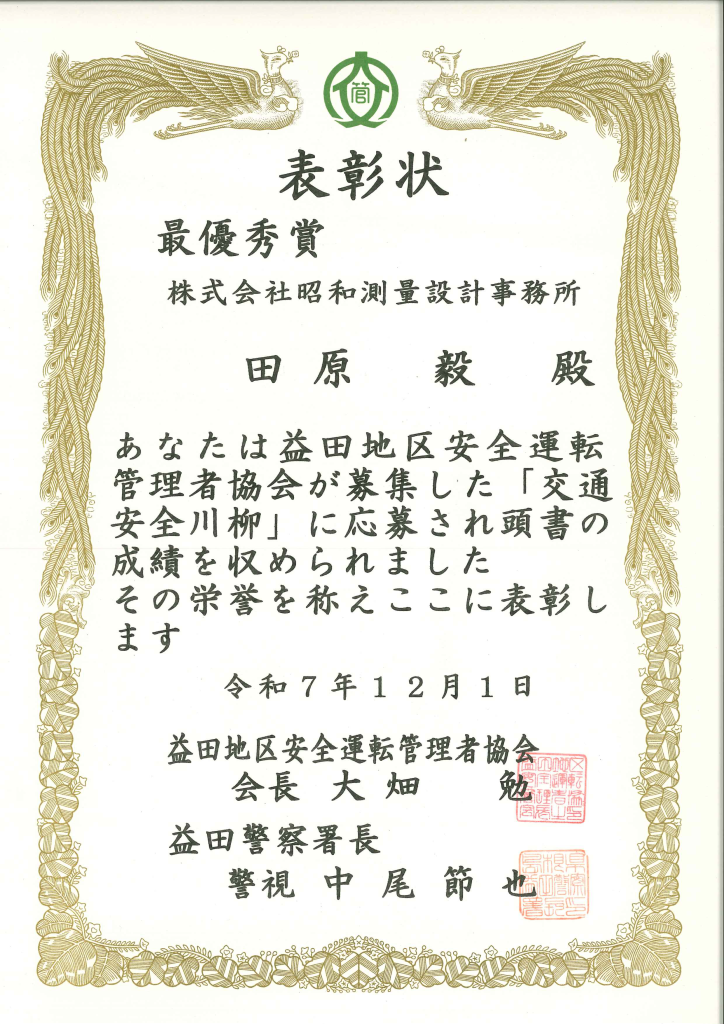 管
表彰状
最優秀賞
株式会社昭和測量設計事務所
田原　毅　殿
あなたは益田地区安全運転
管理者協会が募集した「交通
安全川柳」に応募され頭書の
成績を収められました
その栄誉を称えここに表彰し
ます
令和７年１２月１日
益田地区安全運転管理者協会
会長　大畑　勉
益田警察署長
警視　中尾節也